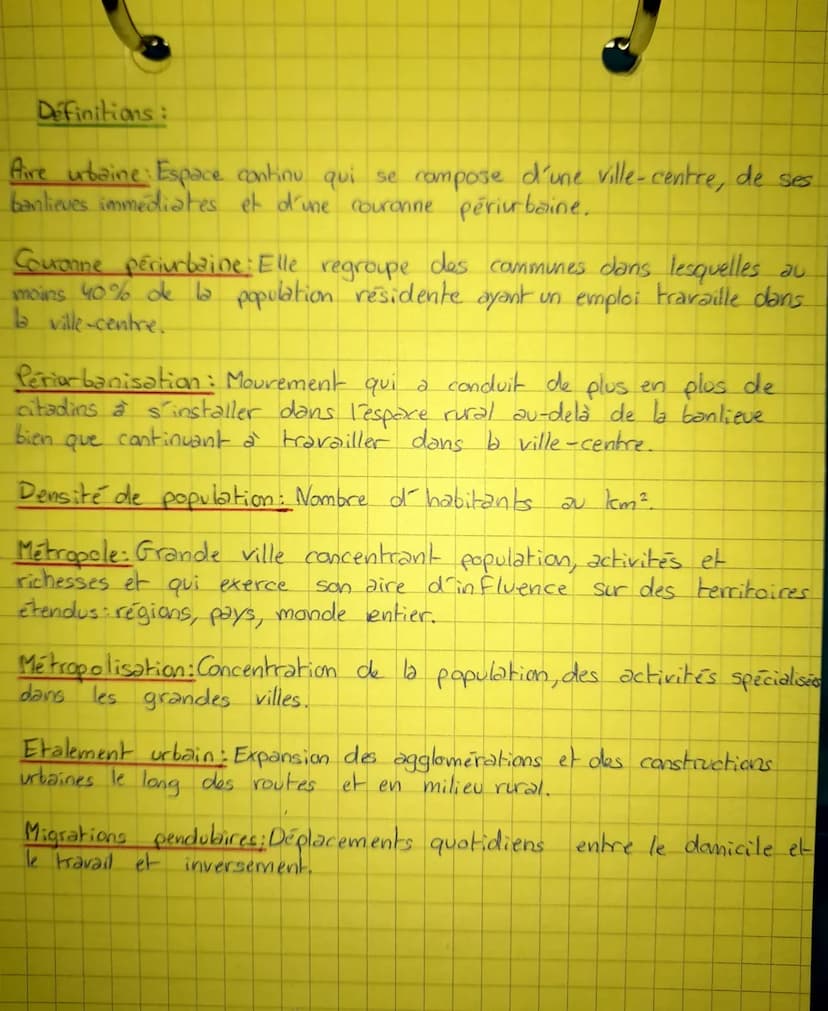 Définitions :
Aire urbaine : Espace continu qui se compose d'une ville-centre, de ses
banlieues immédiates et d'une couronne périurbaine.
Couronne périurbaine : Elle regroupe des communes dans lesquelles au
moins 40% de la population résidente ayant un emploi travaille dans
la ville-centre.
Périurbanisation : Mouvement qui a conduit de plus en plus de
citadins à s'installer dans l'espace rural au-delà de la banlieue
bien que continuant à travailler dans la ville-centre.
Densité de population : Nombre d'habitants au km².
Métropole : Grande ville concentrant population, activités et
richesses et qui exerce son aire d'influence sur des territoires
étendus : régions, pays, monde entier.
Métropolisation : Concentration de la population, des activités spécialisées
dans les grandes villes.
Etalement urbain : Expansion des agglomérations et des constructions
urbaines le long des routes et en milieu rural.
Migrations pendulaires : Déplacements quotidiens entre le domicile et
le travail et inversement.